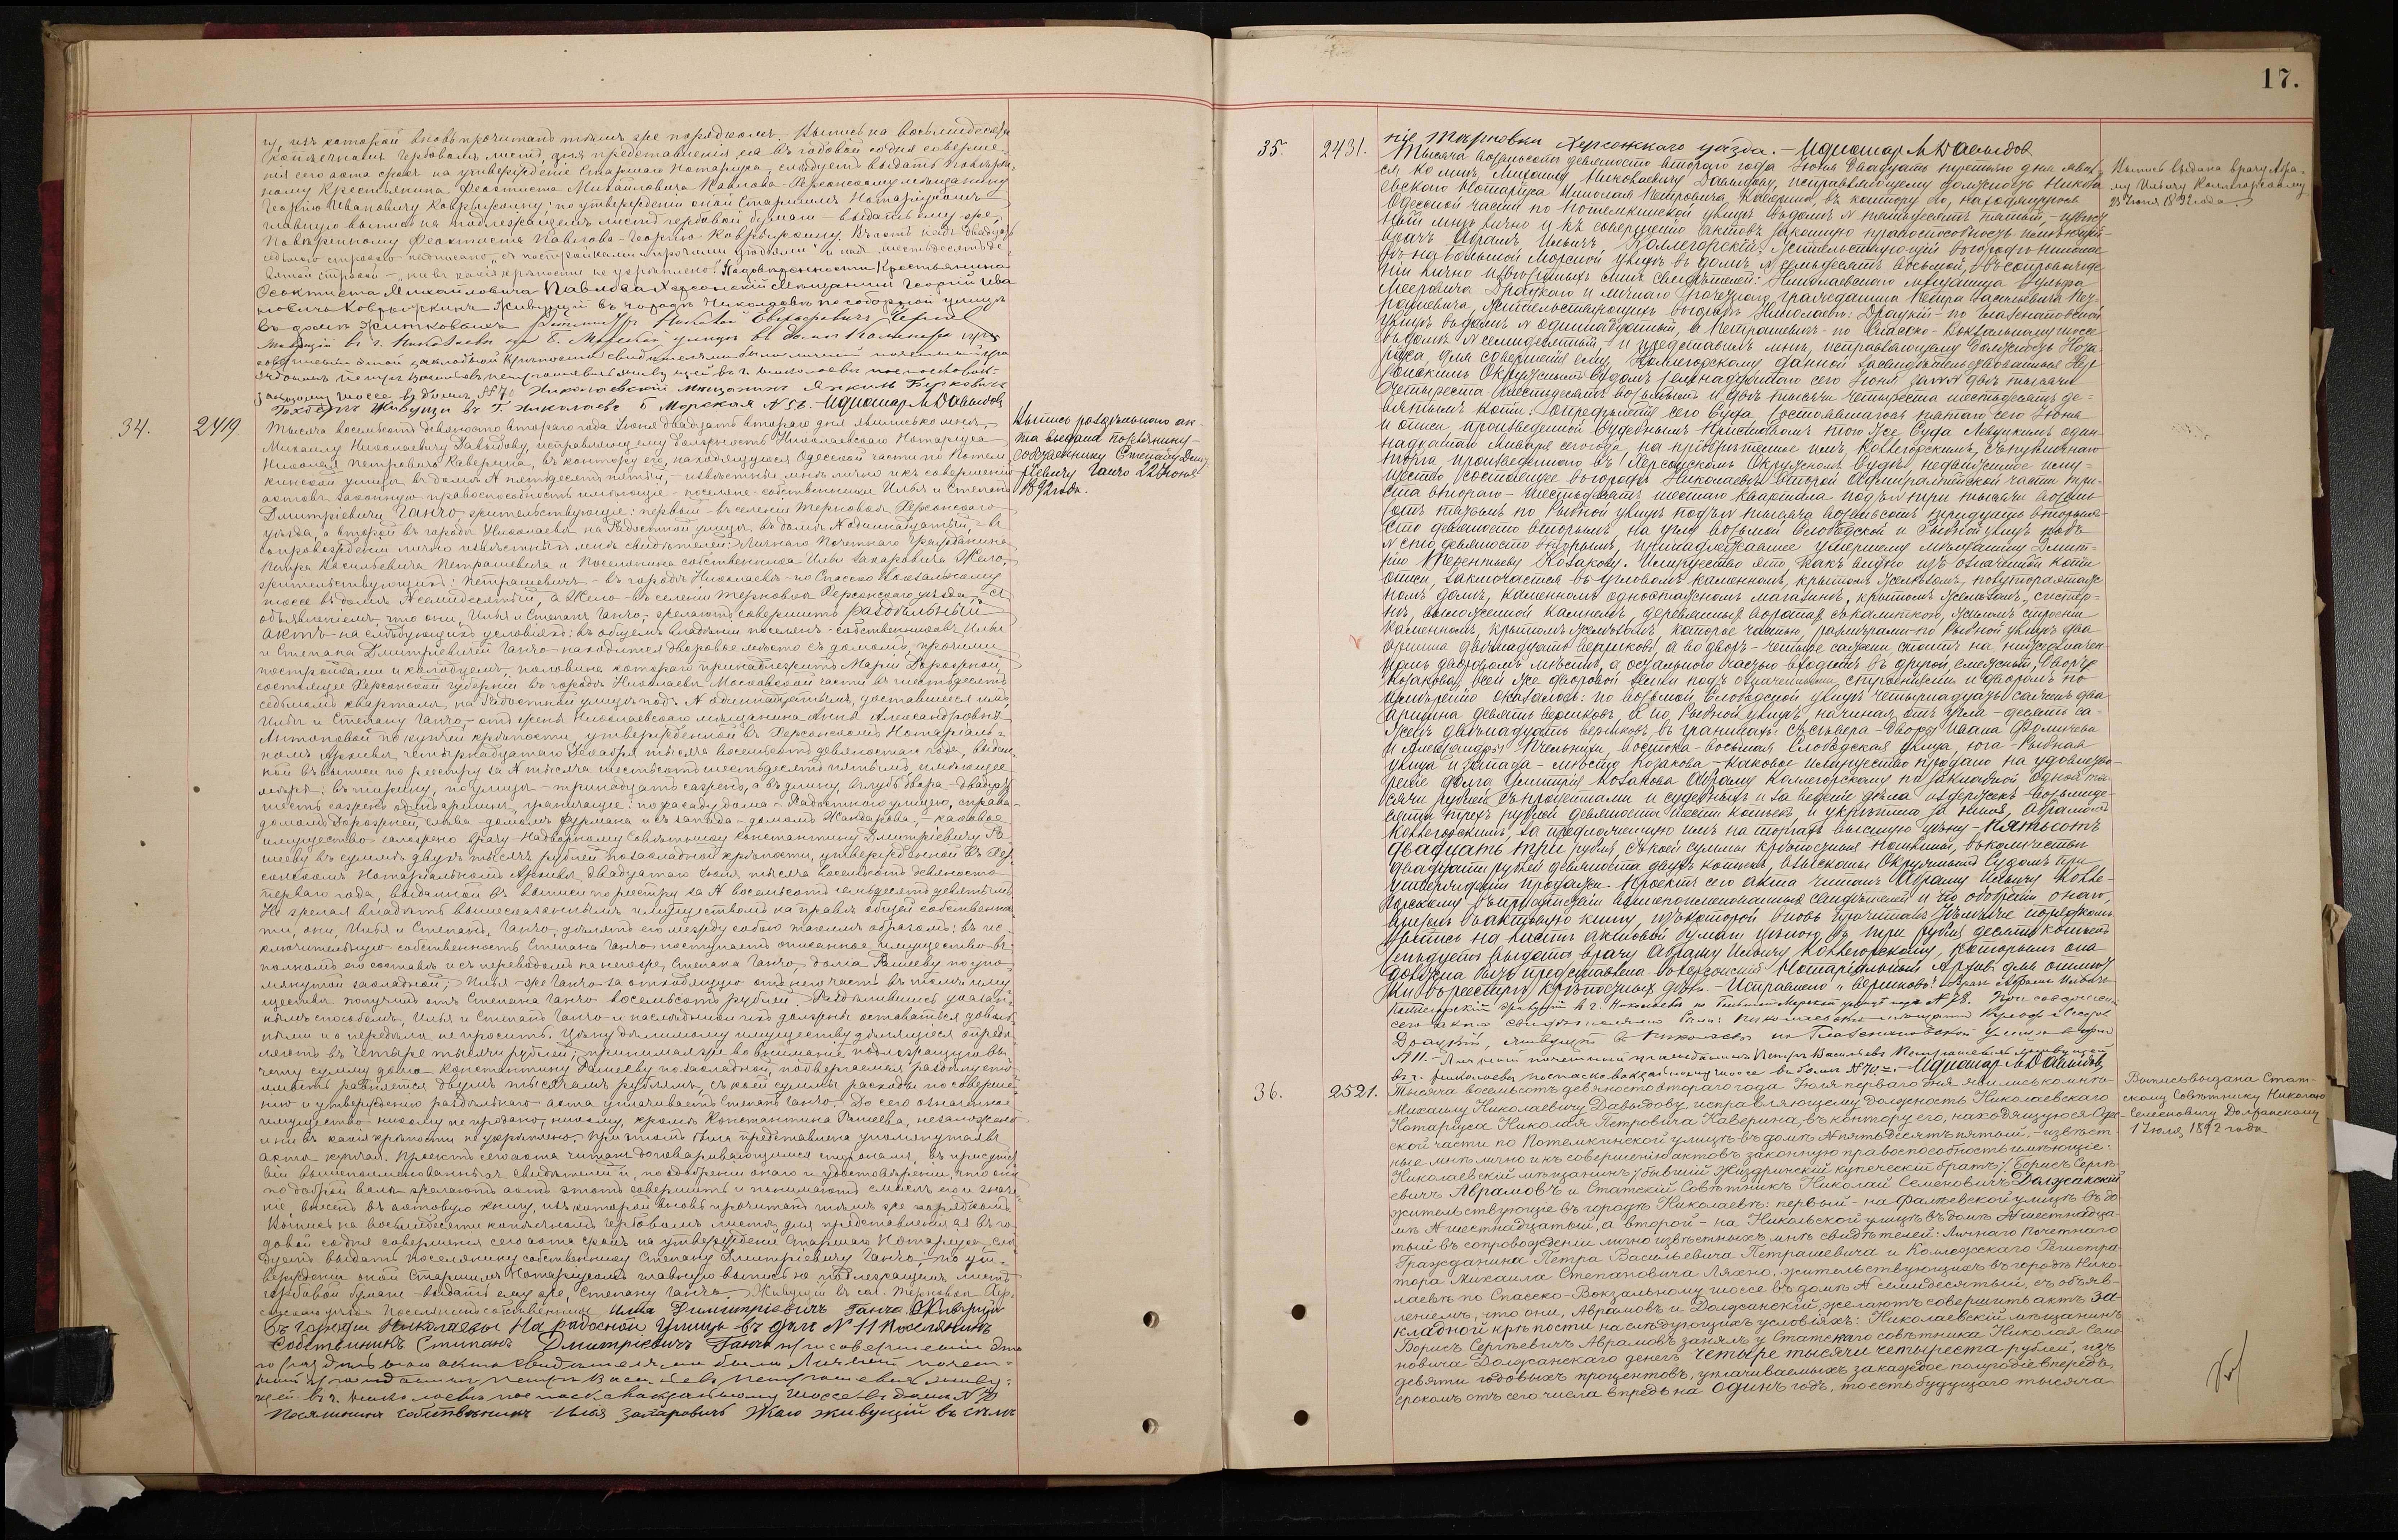 гу, изъ которой вновь прочитанъ тѣмъ же порядкомъ. Выпись на восьмидесяти
копѣечномъ гербовомъ листѣ, для представленія ея въ годовой со дня соверше-
нія сего акта срокъ на утвержденіе Старшаго Нотаріуса, слѣдуетъ выдать повѣрен-
ному крестьянина Феоктиста Михайловича Павлова Херсонскому мѣщанину
Георгію Ивановичу Коврыжкину; по утвержденіи оной Старшимъ Нотаріусомъ
главную выпись на подлежащемъ листѣ гербовой бумаги – выдать ему же,
повѣренному Феоктиста Павлова – Георгію Коврыжкину. Въ актѣ надъ двадцать
седьмою строкою надписано „съ постройками и прочими угодьями“ и надъ шестьдесятъ де-
вятой строкой – „ни въ какія крѣпости не укрѣплено“. По довѣренности Крестьянина
Феоктиста Михайловича Павлова Херсонскій Мѣщанинъ Георгій Ива
новичъ Коврыжкинъ Живущій въ городѣ Николаевѣ по соборной улицѣ
въ домѣ Житковыхъ
живущій въ г. Николаевѣ по Б. Морской улицѣ въ домѣ При
совершеніи этой закладной крѣпости свидѣтелями были личный почетный гра
жданинъ Петръ Васильевъ Петрашевичъ живущій въ г. Николаевѣ по спасковок-
зальному шоссе въ домѣ № 70 Николаевскій мѣщанинъ Янкиль Берковичъ
живущи въ Г. Николаевѣ Б Морская № 56. И д нотар М Давыдовъ
34. 2419 Тысяча восемьсотъ девяносто втораго года Іюня двадцать втораго дня явились ко мнѣ,
Михаилу Николаевичу Давыдову, исправляющему должность Николаевскаго Нотаріуса
Николая Петровича Каверина, въ контору его, находящуюся Одесской части по Потем-
кинской улицѣ въ домѣ № пятьдесятъ пятый, – извѣстные мнѣ лично и къ совершенію
актовъ законную правоспособность имѣющіе – поселяне-собственники Илья и Степанъ
Дмитріевичи Ганчо, жительствующіе: первый – въ селеніи Терновка Херсонскаго
уѣзда, а второй въ городѣ Николаевѣ, на Радостной улицѣ, въ домѣ № одиннадцатый, – въ
сопровожденіи лично извѣстныхъ мнѣ свидѣтелей: Личнаго Почетнаго Гражданина
Петра Васильевича Петрашевича и Поселянина собственника Ильи Захаровича Жело,
жительствующихъ: Петрашевичъ – въ городѣ Николаевѣ – по Спасско Вокзальному
шоссе въ домѣ № семидесятый, а Жело – въ селеніи Терновка Херсонскаго уѣзда, – съ
объявленіемъ, что они, Илья и Степанъ Ганчо, желаютъ совершить раздѣльный
актъ на слѣдующихъ условіяхъ: въ общемъ владѣніи поселянъ-собственниковъ Ильи
и Степана Дмитріевичей Ганчо находится дворовое мѣсто съ домомъ, прочими
постройками и колодцемъ, половина котораго принадлежитъ Маріи Дорожной,
состоящее Херсонской губерніи въ городѣ Николаевѣ Московской части въ шестьдесятъ
седьмомъ кварталѣ, на Радостной улицѣ подъ № одиннадцатымъ, доставшееся имъ,
Ильѣ и Степану Ганчо отъ жены Николаевскаго мѣщанина Анны Александровны
Антоновой по купчей крѣпости, утвержденной въ Херсонскомъ Нотаріаль-
номъ Архивѣ, четырнадцатаго Декабря тысяча восемьсотъ девяностаго года, выдан-
ной въ выписи по реестру за № тысяча шестьсотъ шестьдесятъ пятымъ, имѣющее
мѣры: въ ширину, по улицѣ – тринадцать сажень, а въ длину, вглубь двора – двадцать
шесть сажень одинъ аршинъ, граничащее: по фасаду дома – Радостною улицею, справа –
домомъ Дорожней, слѣва – домомъ Фурмана и съ запада – домомъ Жандарова, – каковое
имущество заложено врачу Надворному Совѣтнику Константину Дмитріевичу Ра
шееву въ суммѣ двухъ тысячъ рублей по закладной крѣпости, утвержденной въ Хер-
сонскомъ Нотаріальномъ Архивѣ двадцатаго Іюля тысяча восемьсотъ девяносто
перваго года, выданной въ выписи по реестру за № восемьсотъ семьдесятъ девятымъ.
Не желая владѣть вышесказаннымъ имуществомъ на правѣ общей собственнос-
ти, они, Илья и Степанъ Ганчо, дѣлятъ его между собою такимъ образомъ: въ ис-
ключительную собственность Степана Ганчо поступаетъ описанное имущество въ
полномъ его составѣ и съ переводомъ на него же, Степана Ганчо, долга Рашееву по упо-
мянутой закладной; Илья-же Ганчо за отходящую отъ него часть въ томъ иму
ществѣ получилъ отъ Степана Ганчо восемьсотъ рублей. Раздѣлившись указан-
нымъ способомъ, Илья и Степанъ Ганчо и наслѣдники ихъ должны оставаться доволь-
ными и о передѣлѣ не просить. Цѣну дѣлимому имуществу дѣлящіеся опредѣ-
ляютъ въ четыре тысячи рублей, принимая же во вниманіе подлежащую вы-
чету сумму долга Константину Рашееву по закладной, подвергаемая раздѣлу сто
имость равняется двумъ тысячамъ рублямъ, съ коей суммы расходы по соверше-
нію и утвержденію раздѣльнаго акта уплачиваетъ Степанъ Ганчо. До сего означенное
имущество никому не продано, никому, кромѣ Константина Рашеева, не заложено
и ни въ какія крѣпости не укрѣплено. При этомъ была представлена упомянутая въ
актѣ купчая. Проектъ сего акта читанъ договаривающимся сторонамъ, въ присутст
віи вышепоименованныхъ свидѣтелей и, по одобреніи онаго и удостовѣреніи, что они
по доброй волѣ желаютъ актъ этотъ совершить и понимаютъ смыслъ его и значе
ніе, внесенъ въ актовую книгу, изъ которой вновь прочитанъ тѣмъ же порядкомъ.
Выпись на восьмидесяти копѣечномъ гербовомъ листѣ, для представленія ея въ го-
довой со дня совершенія сего акта срокъ на утвержденіе Старшаго Нотаріуса, слѣ
дуетъ выдать Поселянину собственнику Степану Дмитріевичу Ганчо; по ут-
вержденіи оной Старшимъ Нотаріусомъ главную выпись на подлежащемъ листѣ
гербовой бумаги – выдать ему же, Степану Ганчо. Живущій въ сел. Терновкѣ Хер-
сонскаго уѣзда Поселянинъ собственникъ Илья Димитріевичъ Ганчо. Живущій
въ городи Николаевы На радосной Улицы въ дом № 11 Поселянинъ
Собствникъ Стипанъ Дмитріевичъ Ганчо при совершеніи Это
го раздѣльнаго акта свидѣтелями были Личный почет-
ный гражданинъ Петръ Васильевъ Петрашевичъ живу-
щей въ г. Николаевѣ по спасковокзальному шоссе въ домѣ № 70
Поселянинъ собственникъ Илья Захаровичъ Жело живущій въ селѣ
Выпись раздѣльнаго ак-
та выдана поселянину-
собственнику Степану Дми
тріевичу Ганчо 22 Іюня
1892 года.
17.
ніе Терновки Херсонскаго уѣзда. – И д нотар М Давыдов
35. 2431. Тысяча восемьсотъ девяносто втораго года Іюня двадцать третьяго дня явил-
ся ко мнѣ, Михаилу Николаевичу Давыдову, исправляющему должность Никола
евскаго Нотаріуса Николая Петровича Каверина, въ контору его, находящуюся
Одесской части по Потемкинской улицѣ въ домѣ № пятьдесятъ пятый, – извѣст
ный мнѣ лично и къ совершенію актовъ законную правоспособность имѣющій –
врачъ Абрамъ Ильичъ Коллегорскій, жительствующій въ городѣ Николае
вѣ на большой Морской улицѣ въ домѣ № семьдесятъ восьмой, въ сопровожде
ніи лично извѣстныхъ мнѣ свидѣтелей: Николаевскаго мѣщанина Вульфа
Мееровича Драцкаго и личнаго почетнаго гражданина Петра Васильевича Пет-
рашевича, жительствующихъ въ городѣ Николаевѣ: Драцкій – по Глазенаповской
улицѣ въ домѣ № одиннадцатый, а Петрашевичъ – по Спасско-Вокзальному шоссе
въ домѣ № семидесятый, и представилъ мнѣ, исправляющему должность Нота-
ріуса, для совершенія ему, Коллегорскому данной засвидѣтельствованныя Хер
сонскимъ Окружнымъ Судомъ семнадцатаго сего Іюня за №№ двѣ тысячи
четыреста шестьдесятъ восьмымъ и двѣ тысячи четыреста шестьдесятъ де-
вятымъ копіи: опредѣленія сего Суда, состоявшагося пятаго сего Іюня
и описи, произведенной Судебнымъ Приставомъ того же Суда Левуцкимъ один-
надцатаго Января сего года на пріобрѣтенное имъ, Коллегорскимъ, съ публичнаго
торга, произведеннаго въ Херсонскомъ Окружномъ Судѣ, недвижимое иму-
щество, состоящее въ городѣ Николаевѣ второй Адмиралтейской части три-
ста втораго – шестьдесятъ шестаго квартала подъ № три тысячи восемь
сотъ пятымъ по Рыбной улицѣ подъ № тысяча восемьсотъ тридцать вторымъ –
сто девяносто вторымъ на углу восьмой Слободской и Рыбной улицъ подъ
№ сто девяносто вторымъ, принадлежавшее умершему мѣщанину Дмит-
рію Терентьеву Козакову. Имущество это, какъ видно изъ означенной копіи
описи, заключается въ угловомъ каменномъ, крытомъ желѣзомъ, полутораэтаж
номъ домѣ, каменномъ одноэтажномъ магазинѣ, крытомъ желѣзомъ, систер-
нѣ, выложенной камнемъ, деревянныхъ воротахъ съ калиткою, жиломъ строеніи
каменномъ, крытомъ желѣзомъ, которое частью, размѣрами – по Рыбной улицѣ два
аршина двѣнадцать вершковъ, а во дворѣ – четыре сажени, стоитъ на нижеозначен-
номъ дворовомъ мѣстѣ, а остальною частью входитъ въ другой, смежный, дворъ
Козакова; всей же дворовой земли подъ означенными строеніями и дворомъ по
измѣренію оказалось: по восьмой Слободской улицѣ четырнадцать сажень два
аршина девять вершковъ, а по Рыбной улицѣ, начиная отъ угла – десять са-
жень двѣнадцать вершковъ, въ границахъ: съ сѣвера – дворъ Ивана Фомичева
и Александры Пчельниковой, востока – восьмая Слободская улица, юга – Рыбная
улица и запада – мѣсто Козакова – каковое имущество продано на удовлетво-
реніе долга Дмитрія Козакова Абраму Коллегорскому по закладной одной ты-
сячи рублей съ процентами и судебныхъ и за веденіе дѣла издержекъ – восьмиде-
сяти трехъ рублей девяноста шести копѣекъ, и укрѣплено за нимъ, Абрамомъ
Коллегорскимъ, за предложенную имъ на торгахъ высшую цѣну – пятьсотъ
двадцать три рубля, съ коей суммы крѣпостныя пошлины, въ количествѣ
двадцати рублей девяноста двухъ копѣекъ, взысканы Окружнымъ Судомъ при
утвержденіи продажи. Проектъ сего акта читанъ Абраму Ильичу Колле-
горскому въ присутствіи вышепоименованныхъ свидѣтелей и по одобреніи онаго,
внесенъ въ актовую книгу, изъ которой вновь прочитанъ тѣмъ же порядкомъ.
Выпись на листѣ актовой бумаги цѣною въ три рубля десять копѣекъ
слѣдуетъ выдать врачу Абраму Ильичу Коллегорскому, которымъ она
должна быть представлена въ Херсонскій Нотаріальный Архивъ для отмѣт
ки въ реестрѣ крѣпостныхъ дѣлъ. – Исправлено „вершковъ“. Врачъ Абрамъ Ильичъ
Коллегорскій живущій въ г. Николаевѣ по Большой Морской улицѣ подъ № 78. При совершеніи
сего акта свидѣтелями были: Николаевскій мѣщанинъ Вульфъ Мееров
Драцкій, живущій въ Николаевѣ по Глазенаповской улицѣ въ домѣ
№ 11. – Личный почетный гражданинъ Петръ Васильевъ Петрашевичъ живущей
въ г. Николаевѣ по спасковокзальному шоссе въ домѣ № 70. – И д нотар М Давыдовъ
Выпись выдана врачу Абра-
му Ильичу Коллегорскому
23 Іюня 1892 года
36. 2521. Тысяча восемьсотъ девяносто втораго года Іюля перваго дня явились ко мнѣ
Михаилу Николаевичу Давыдову, исправляющему должность Николаевскаго
Нотаріуса Николая Петровича Каверина, въ контору его, находящуюся Одес-
ской части по Потемкинской улицѣ въ домѣ № пятьдесятъ пятый, – извѣст-
ные мнѣ лично и къ совершенію актовъ законную правоспособность имѣющіе:
Николаевскій мѣщанинъ /бывшій Жиздринскій купеческій братъ/ Борисъ Сергѣ-
евичъ Аврамовъ и Статскій Совѣтникъ Николай Семеновичъ Должанскій
жительствующіе въ городѣ Николаевѣ: первый – на Фалѣевской улицѣ въ до-
мѣ № шестнадцатый, а второй – на Никольской улицѣ въ домѣ № шестнадца-
тый въ сопровожденіи лично извѣстныхъ мнѣ свидѣтелей: Личнаго Почетнаго
Гражданина Петра Васильевича Петрашевича и Коллежскаго Регистра-
тора Михаила Степановича Ляхно, жительствующихъ въ городѣ Нико-
лаевѣ по Спасско-Вокзальному шоссе въ домѣ № семидесятый, съ объяв-
леніемъ, что они, Аврамовъ и Должанскій, желаютъ совершить актъ за-
кладной крѣпости на слѣдующихъ условіяхъ: Николаевскій мѣщанинъ
Борисъ Сергѣевичъ Аврамовъ занялъ у Статскаго совѣтника Николая Семе-
новича Должанскаго денегъ четыре тысячи четыреста рублей, изъ
девяти годовыхъ процентовъ, уплачиваемыхъ за каждое полугодіе впередъ,
срокомъ отъ сего числа впредь на одинъ годъ, то есть будущаго тысяча
Выпись выдана Стат-
скому Совѣтнику Николаю
Семеновичу Должанскому
1 Іюля 1892 года